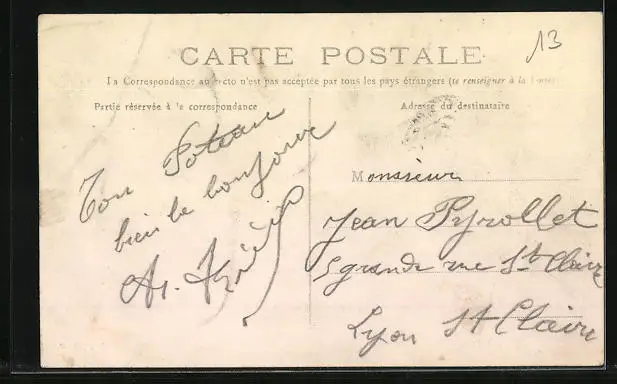 13
CARTE POSTALE
La Correspondance au recto n'est pas acceptée par tous les pays étrangers (se renseigner à la Poste)
Partie réservée à la correspondance
Adresse du destinataire
Ton Poteau
bien le bonjour
Monsieur
Jean Pyrollet
5 grande rue St Claire
Lyon St Claire